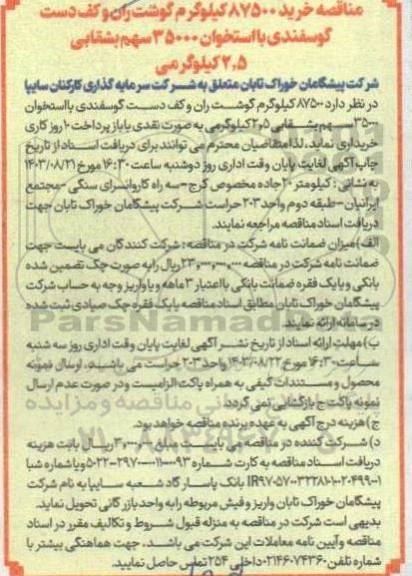 مناقصه خرید ۸۷۵۰۰ کیلوگرم گوشت ران و کف دست
گوسفندی با استخوان ۳۵۰۰۰ سهم بشقابی
۲٫۵ کیلوگرمی
شرکت پیشگامان خوراک تابان متعلق به شرکت سرمایه گذاری کارکنان سایپا
در نظر دارد ۸۷۵۰۰ کیلوگرم گوشت ران و کف دست گوسفندی با استخوان
۳۵۰۰۰ سهم بشقابی ۲٫۵ کیلوگرمی به صورت نقدی یا باز پرداخت ۱۰ روز کاری
خریداری نماید. لذا متقاضیان محترم می توانند برای دریافت اسناد از تاریخ
چاپ آگهی لغایت پایان وقت اداری روز دوشنبه ساعت ۱۶:۳۰ مورخ ۱۴۰۳/۰۸/۲۱
به نشانی: کیلومتر ۲۰ جاده مخصوص کرج-سه راه کاروانسرای سنگی -مجتمع
ایرانیان -طبقه دوم واحد ۲۰۳ حراست شرکت پیشگامان خوراک تابان جهت
دریافت اسناد مناقصه مراجعه نمایند.
الف) میزان ضمانت نامه شرکت در مناقصه: شرکت کنندگان می بایست جهت
ضمانت نامه شرکت در مناقصه ۲۳,۰۰۰,۰۰۰,۰۰۰ ریال را به صورت چک تضمین شده
بانکی و یا یک فقره ضمانت بانکی با اعتبار ۳ ماهه و یا واریز وجه به حساب شرکت
پیشگامان خوراک تابان مطابق اسناد مناقصه یا یک فقره چک صیادی ثبت شده
در سامانه ارائه نمایند.
ب) مهلت ارائه اسناد از تاریخ نشر آگهی لغایت پایان وقت اداری روز سه شنبه
ساعت ۱۶:۳۰ مورخ ۱۴۰۳/۰۸/۲۲ واحد ۲۰۳ حراست می باشد. ارسال نمونه
محصول و مستندات کیفی به همراه پاکت الزامیست و در صورت عدم ارسال
نمونه پاکت ج بازگشایی نمی گردد.
ج) هزینه درج آگهی به عهده برنده مناقصه خواهد بود.
د) شرکت کننده در مناقصه می بایست مبلغ ریال بابت هزینه
دریافت اسناد مناقصه به کارت شماره و یا شماره شبا
بانک پاسارگاد شعبه سایپا به نام شرکت
پیشگامان خوراک تابان واریز و فیش مربوطه را به واحد بازرگانی تحویل نماید.
بدیهی است شرکت در مناقصه به منزله قبول شروط و تکالیف مقرر در اسناد
مناقصه و آیین نامه معاملات این شرکت می باشد، جهت هماهنگی بیشتر با
شماره تلفن ۰۲۱۴۶۰۷۴۳۶۰ داخلی ۲۵۴ تماس حاصل نمایید.
ParsNamadData